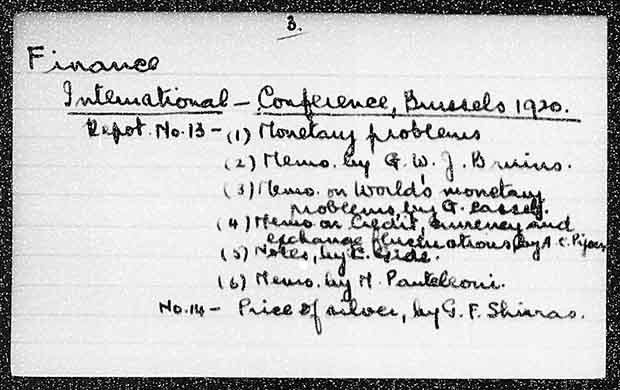 3.
Finance
International - Conference, Brussels 1920.
Repot. No. 13 - (1) Monetary problems
(2) Memo. by G. W. J. Bruins.
(3) Memo. on World's monetary
problems, by G. Cassel.
(4) Memo on Credit, Currency and
exchange fluctuations, by A. C. Pigou
(5) Notes, by C. Gide.
(6) Memo. by M. Pantaleoni.
No. 14 - Price of silver, by G. F. Shirras.